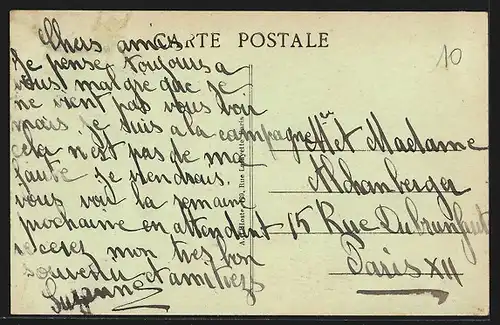 CARTE POSTALE
10
Chers amies
Je pense toujours a
vous malgre que je
ne vient pas vous voir
mais je suis a la campagne
cela n'est pas de ma
faute je viendrais
vous voir la semaine
prochaine en attendant
recevez mon tres bon
souvenir et amitiers
Suzanne
Mr et Madame
15 Rue Dubrunfaut
Paris XII
Rue Lafayette, Paris